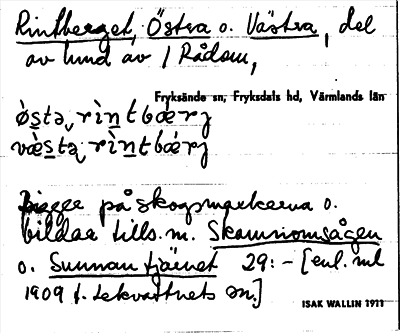 Rintberget, Östra o. Västra, del
av lund av / Rådom,
Fryksände sn, Fryksdals hd, Värmlands län
ø̀stə rìntbæ̀rj
væ̀stə rìntbæ̀rj
Ligger på skogsmarkerna o.
bildar tills. m.
o. Sunnantjärnet 29:- [enl. ml
1909 f. Lekvattnets sn.]
ISAK WALLIN 1911